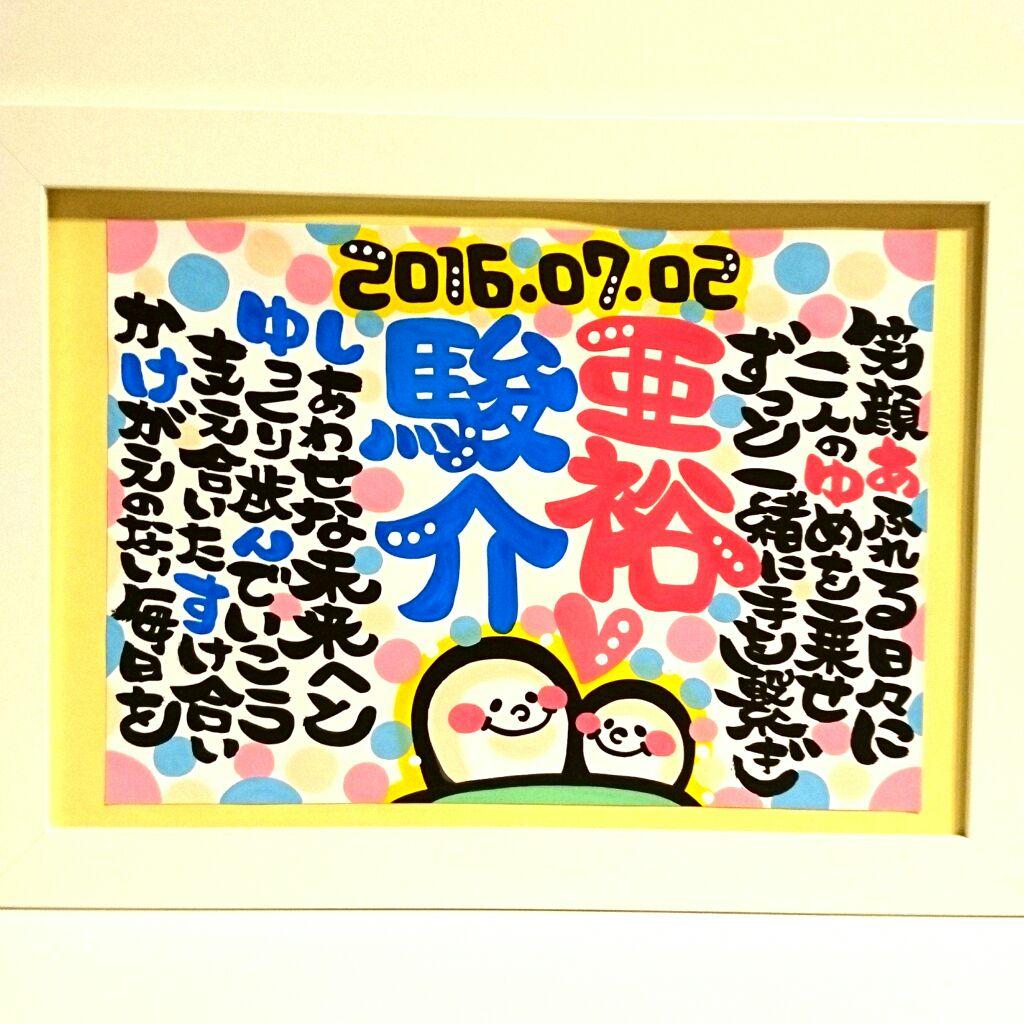 2016.07.02
笑顔あふれる日々に
二人のゆめを乗せ
ずっと一緒に手を繋ぎ
亜裕
駿介
しあわせな未来へと
ゆっくり歩んでいこう
支え合いたすけ合い
かけがえのない毎日を